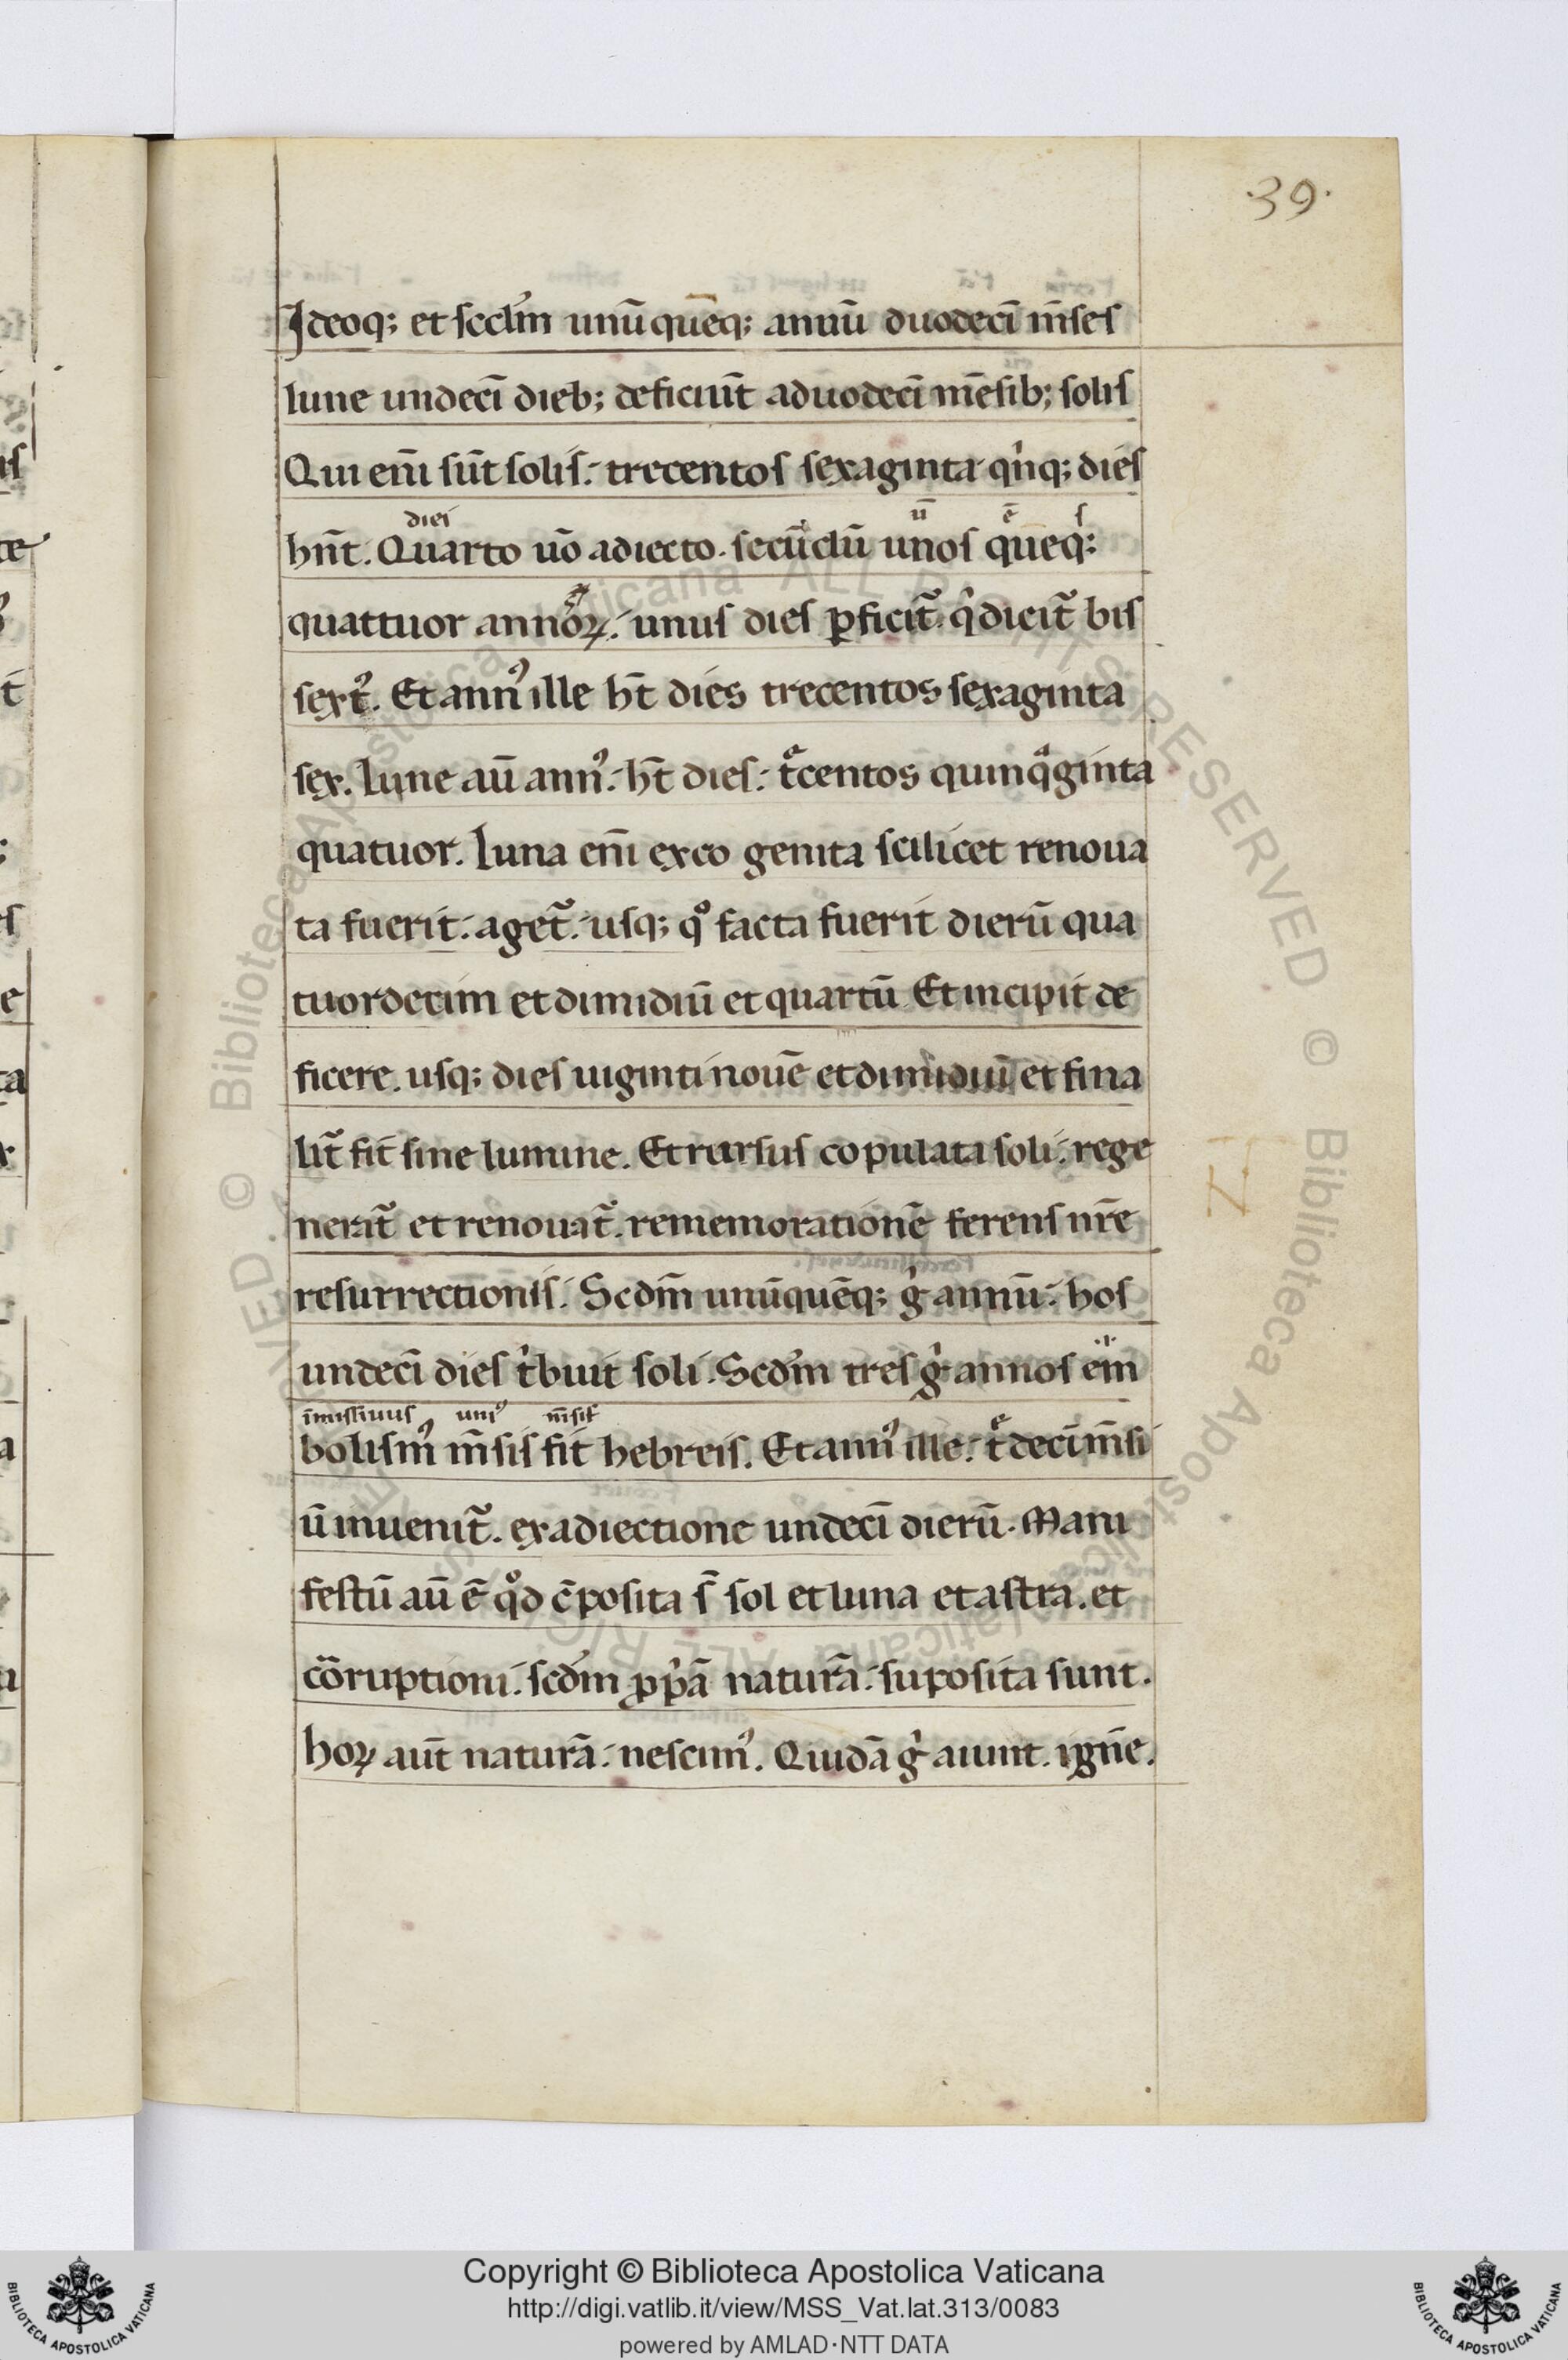 ·39·
Ideoq; et sc̄dm unū quēq; annū duodecī m̄ses
lune undecī dieb; deficiūt aduodecī mēsib; solis
Qui eni̅ sūt solis. trecentos sexaginta qͥnq; dies
diei ū ē s
hn̄t. Quarto uō adiecto. secūdū unos quēeq;
quattuor annoꝝ. unus dies ꝑficit᷑. qͥ dicit᷑ bis
sext᾽. Et ann᾽ ille ht̄ dies trecentos sexaginta
sex. Lune aū ann᾽. ht̄ dies. tͤcentos quinqͣginta
quatuor. Luna eni̅ exco genita scilicet renoua
ta fuerit. aget᷑. usq; qͦ facta fuerit dierū qua
tuordecim et dimidiū et quartū Et incipit de
ficere. usq; dies uiginti nouē et dimidiū et fina
lit᷑ fit sine lumine. Et rursus copulata soli. rege
nerat᷑ et renouat᷑. rememorationē ferens nr̄e
resurrectionis. Scdm̄ unūquēq; gͥ annū. hos
undecī dies tͥbuit soli. Scdm̄ tres gͥ annos em
.i.
unī᾽ m̄sis
bolism᾽ m̄sis fit hebreis. Et ann᾽ ille. tͤdecī m̄si
ū inuenit᷑. ex adiectione undecī dierū. Mani
festū aū ē qͦd c̄posita s̄ sol et luna et astra. et
cōruptioni. scdm̄ ꝓpͥā naturā. suposita sunt.
hoꝝ aūt naturā. nescim᾽. Quidā gͥ aiunt. igne̅.
Copyright © Biblioteca Apostolica Vaticana
http://digi.vatlib.it/view/MSS_Vat.lat.313/0083
powered by AMLAD·NTT DATA